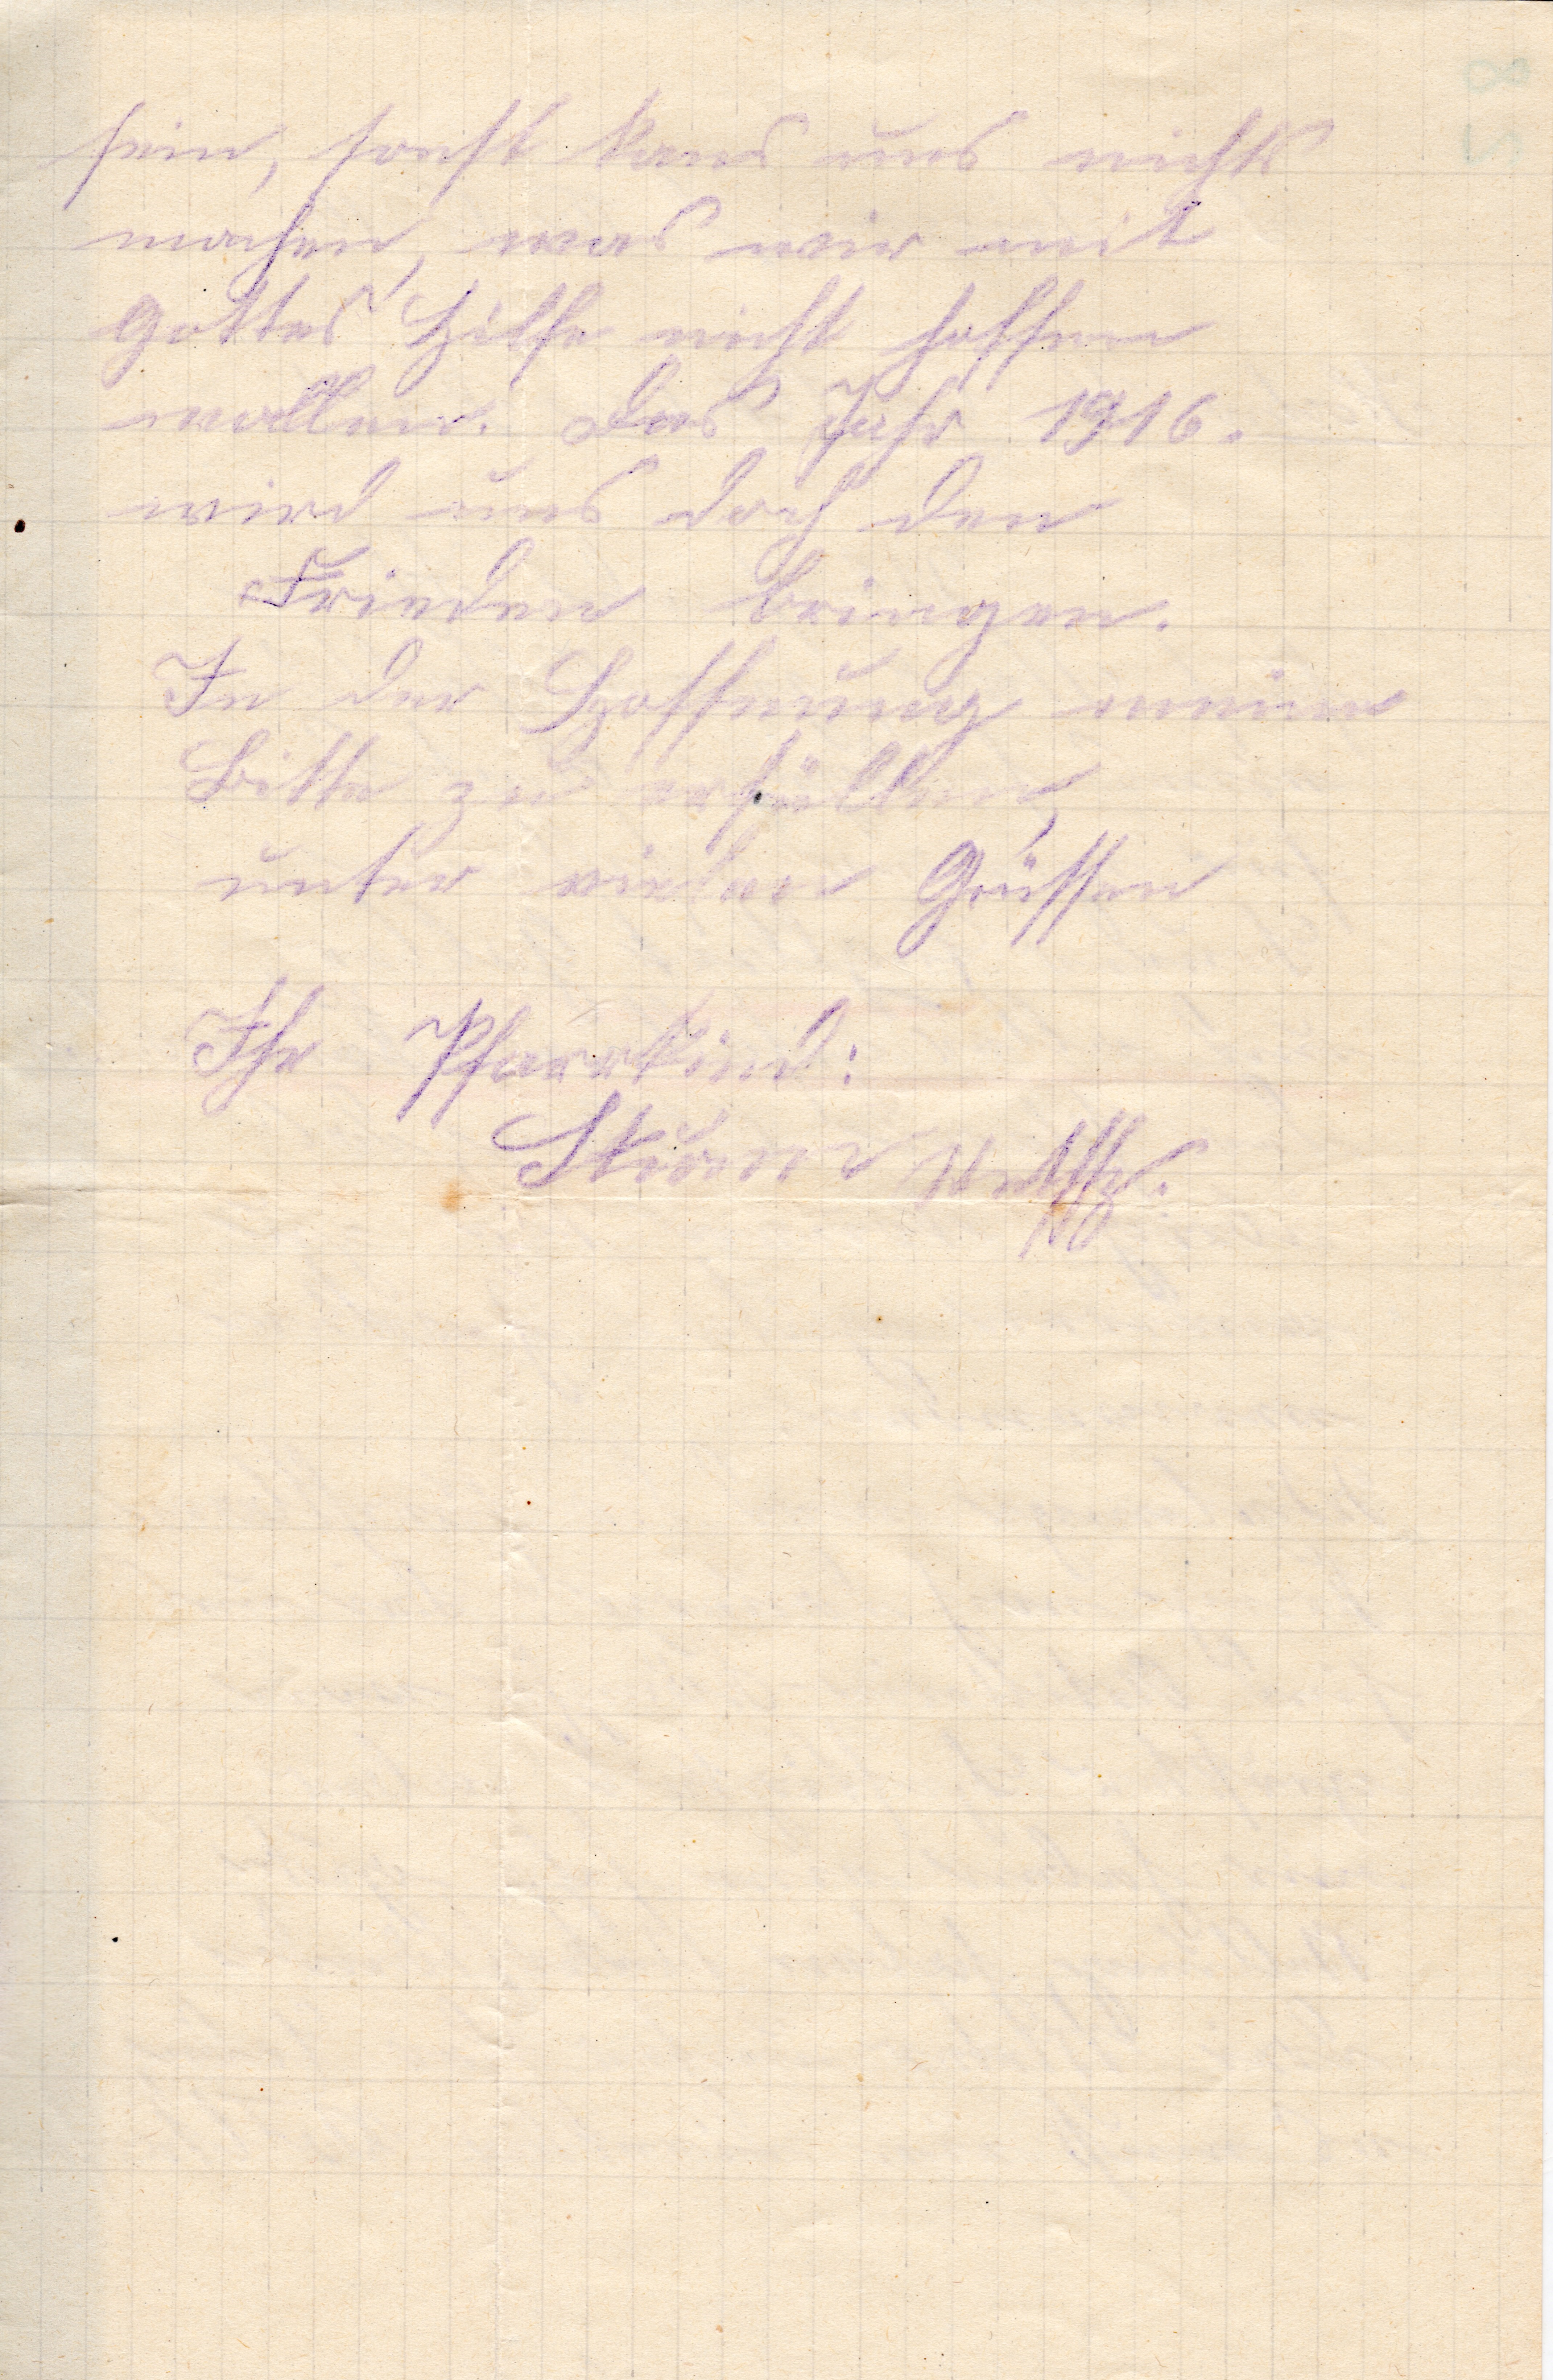 sein, sonst kans uns nichts
machen, was wir mit
Gottes Hilfe nicht hoffen
wollen. Das Jahr 1916.
wird uns doch den
Frieden bringen.
In der Hoffnung meine
Bitte zu erfüllen,
unter vielen Grüssen
Ihr Pfarrkind:
Sturm